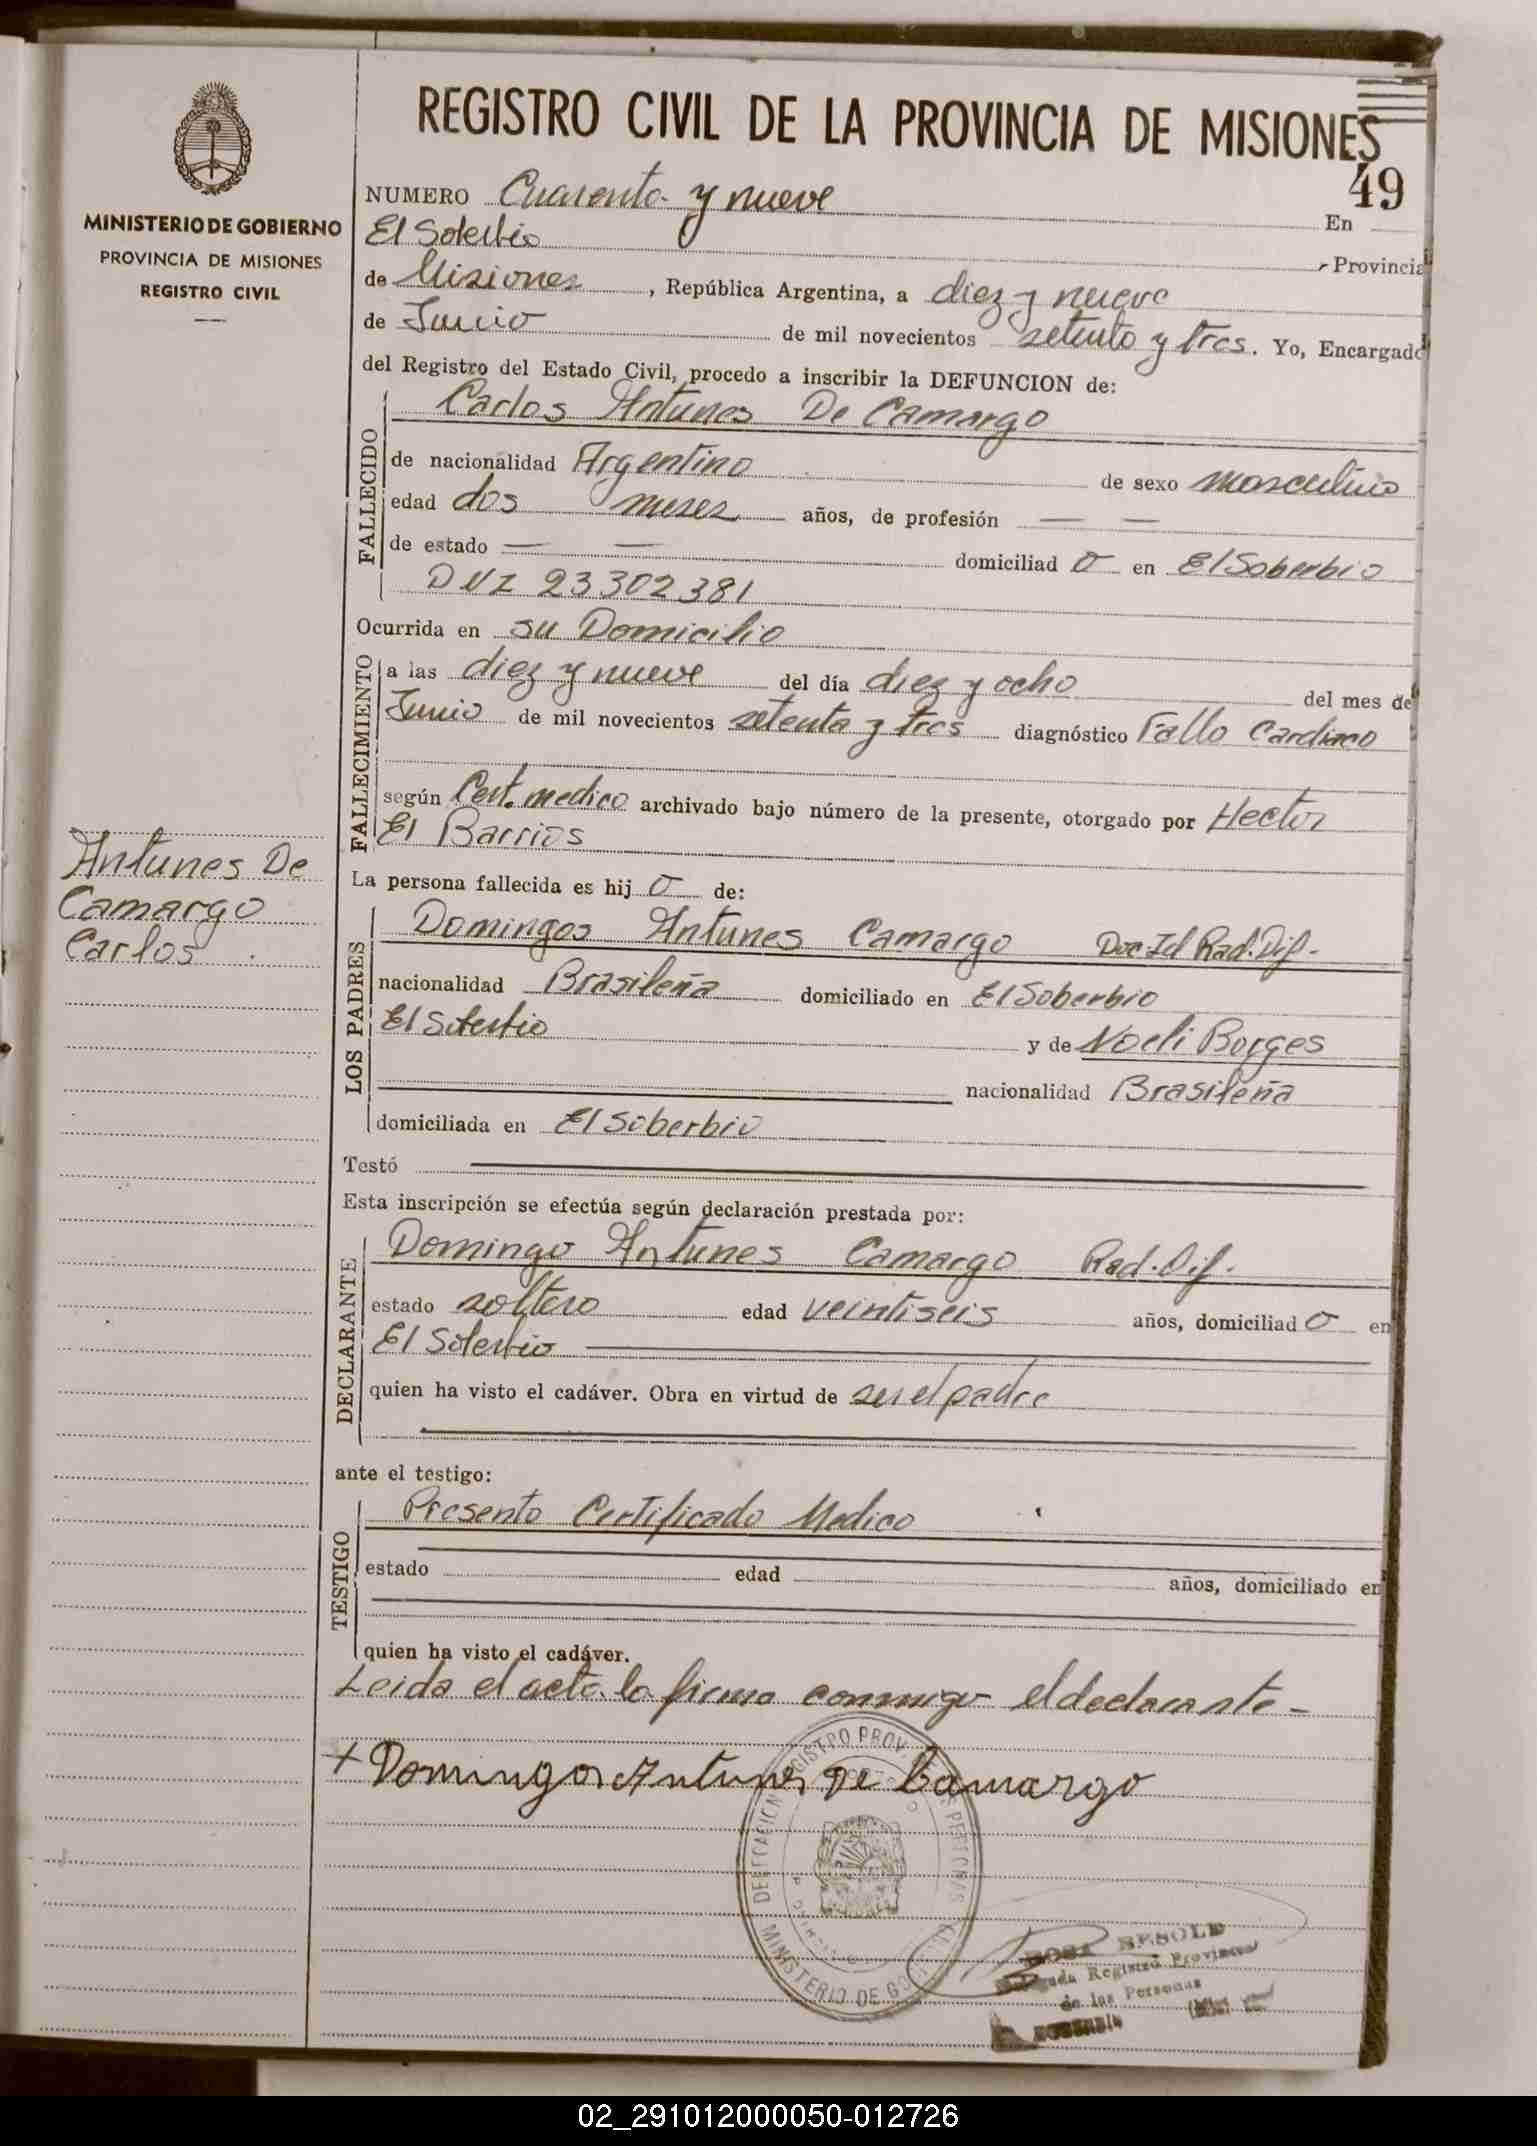 REGISTRO CIVIL DE LA PROVINCIA DE MISIONES
49
MINISTERIO DE GOBIERNO
PROVINCIA DE MISIONES
REGISTRO CIVIL
NUMERO Cuarenta y nueve En
El Soberbio, Provincia
de Misiones, República Argentina, a diez y nueve
de Junio de mil novecientos setenta y tres. Yo, Encargado
del Registro del Estado Civil, procedo a inscribir la DEFUNCION de:
FALLECIDO
Carlos Antunes De Camargo
de nacionalidad Argentino de sexo masculino
edad dos meses años, de profesión — —
de estado — — domiciliad o en El Soberbio
DNI 23302381
Ocurrida en su Domicilio
FALLECIMIENTO
a las diez y nueve del día diez y ocho del mes de
Junio de mil novecientos setenta y tres diagnóstico Fallo Cardiaco
según Cert. medico archivado bajo número de la presente, otorgado por Hector
El Barrios
Antunes De
Camargo
Carlos
La persona fallecida es hij o de:
LOS PADRES
Domingos Antunes Camargo Doc. Id Rad. Dif.
nacionalidad Brasileña domiciliado en El Soberbio
El Soberbio y de Noeli Borges
nacionalidad Brasileña
domiciliada en El Soberbio
Testó
Esta inscripción se efectúa según declaración prestada por:
DECLARANTE
Domingo Antunes Camargo Rad. Dif.
estado soltero edad veintiseis años, domiciliad o en
El Soberbio
quien ha visto el cadáver. Obra en virtud de ser el padre
ante el testigo:
TESTIGO
Presento Certificado Medico
estado edad años, domiciliado en
quien ha visto el cadáver.
Leida el acta la firma conmigo el declarante -
+ Domingos Antunes De Camargo
MINISTERIO DE
ROSA RESOLD
Registro Provincial
de las Personas
02_291012000050-012726